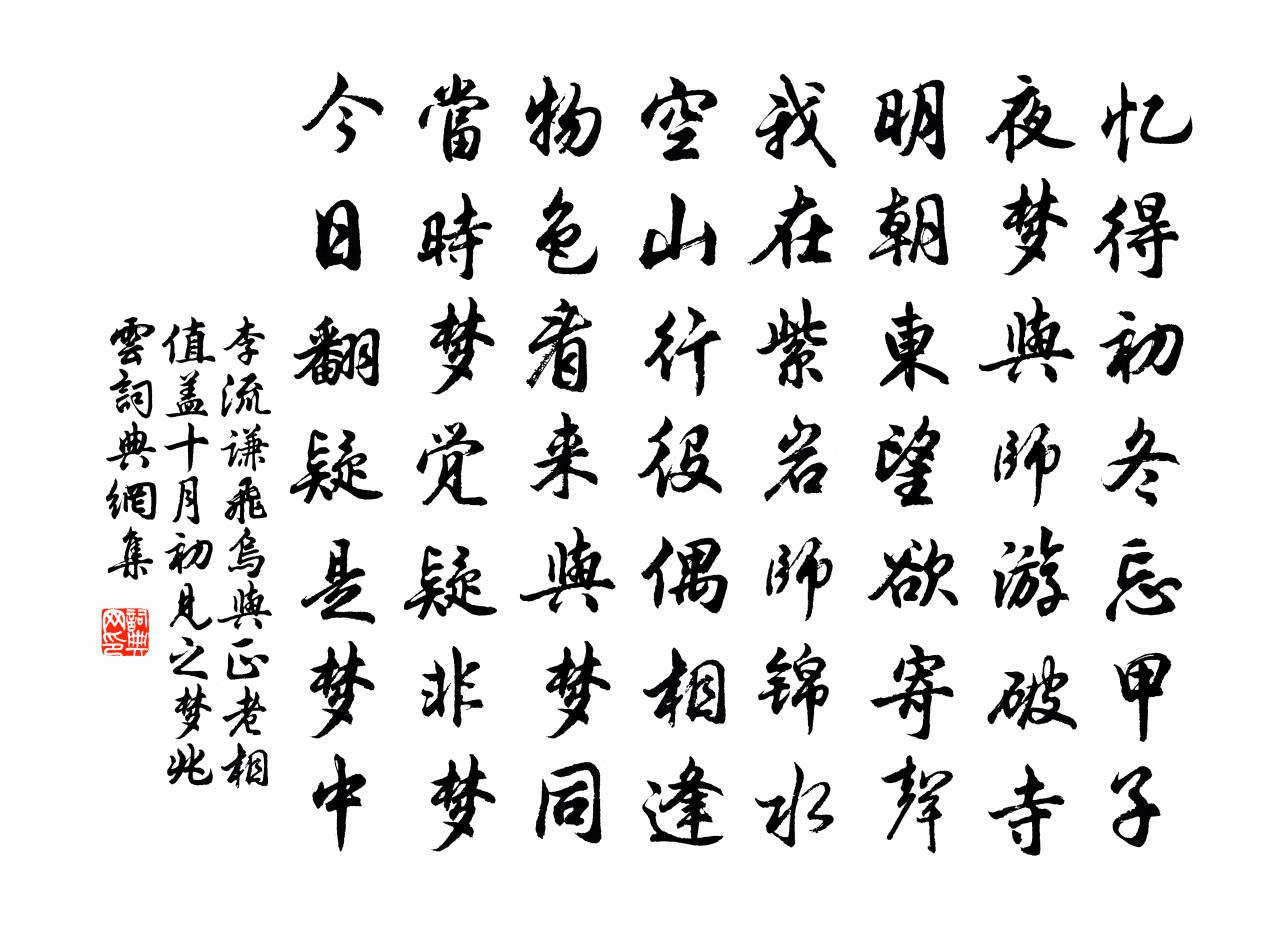 忆得初冬忘甲子
夜梦與師游破寺
明朝東望欲寄聲
我在紫岩師锦水
空山行役偶相逢
物色看来與梦同
當時梦觉疑非梦
今日翻疑是梦中
李流谦飛烏與正老相
值盖十月初見之梦兆
雲詞典網集
詞典
网印